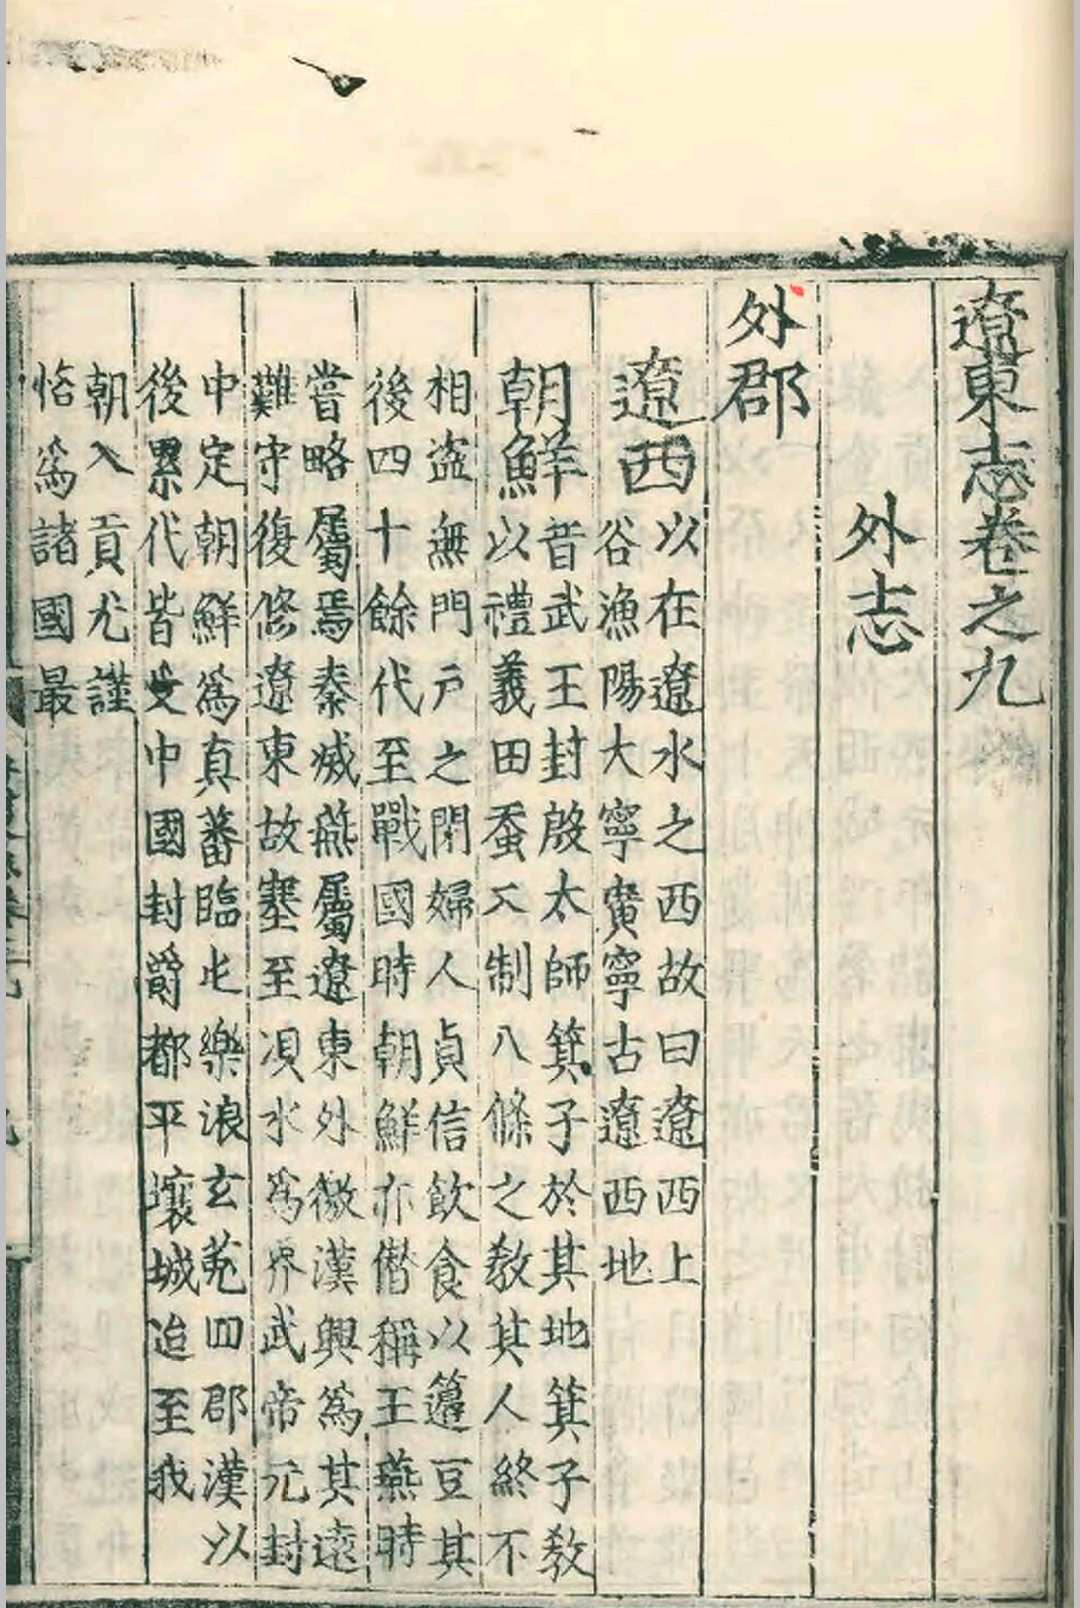 遼東志卷之九
外志
外郡
遼西
以在遼水之西故曰遼西上
谷漁陽大寧廣寧古遼西地
朝鮮
昔武王封殷太師箕子於其地箕子教
以禮義田蚕工制八條之教其人終不
相盗無門戶之閉婦人貞信飲食以籩豆其
後四十餘代至戰國時朝鮮亦僭稱王燕時
嘗略屬焉秦滅燕屬遼東外徼漢興為其遠
難守復修遼東故塞至浿水為界武帝元封
中定朝鮮為真蕃臨屯樂浪玄菟四郡漢以
後累代皆受中國封爵都平壤城迨至我
朝入貢尤謹
恪為諸國最